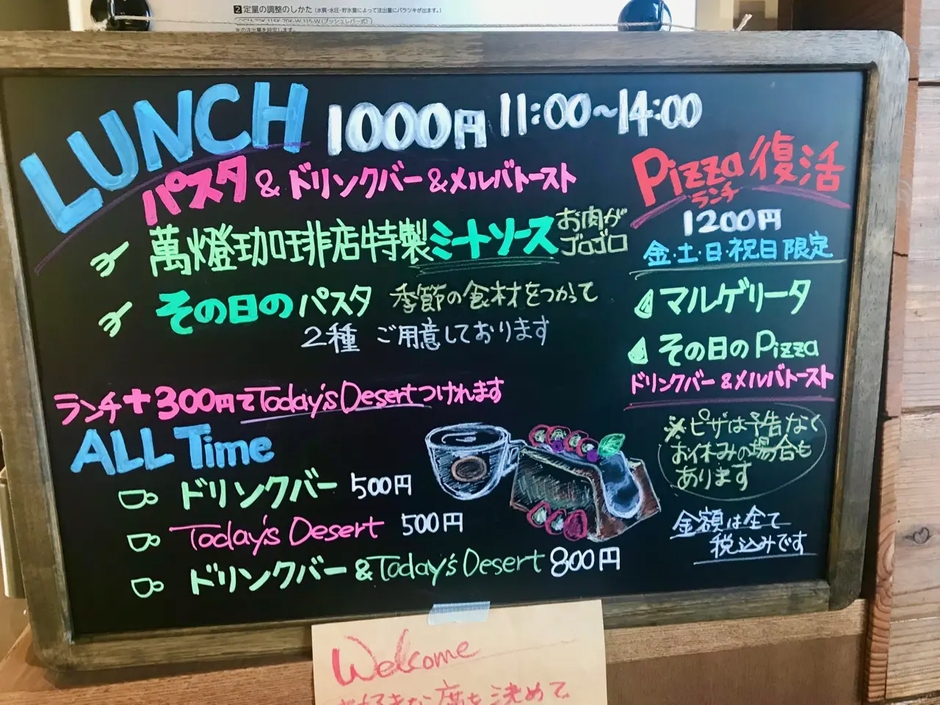 2 定量の調整のしかた (水質・水圧・貯水量によって注出量にバラツキが出ます。)
LUNCH 1000円 11:00~14:00
パスタ & ドリンクバー & メルバトースト
萬燈珈琲店特製ミートソース お肉がゴロゴロ
その日のパスタ 季節の食材をつかって
2種 ご用意しております
ランチ+300円でToday's Desertつけれます
Pizza 復活
ランチ
1200円
金・土・日・祝日限定
マルゲリータ
その日のPizza
ドリンクバー&メルバトースト
※ピザは予告なく
お休みの場合も
あります
金額は全て
税込みです
ALL Time
ドリンクバー 500円
Today's Desert 500円
ドリンクバー&Today's Desert 800円
Welcome
お好きな席を決めて